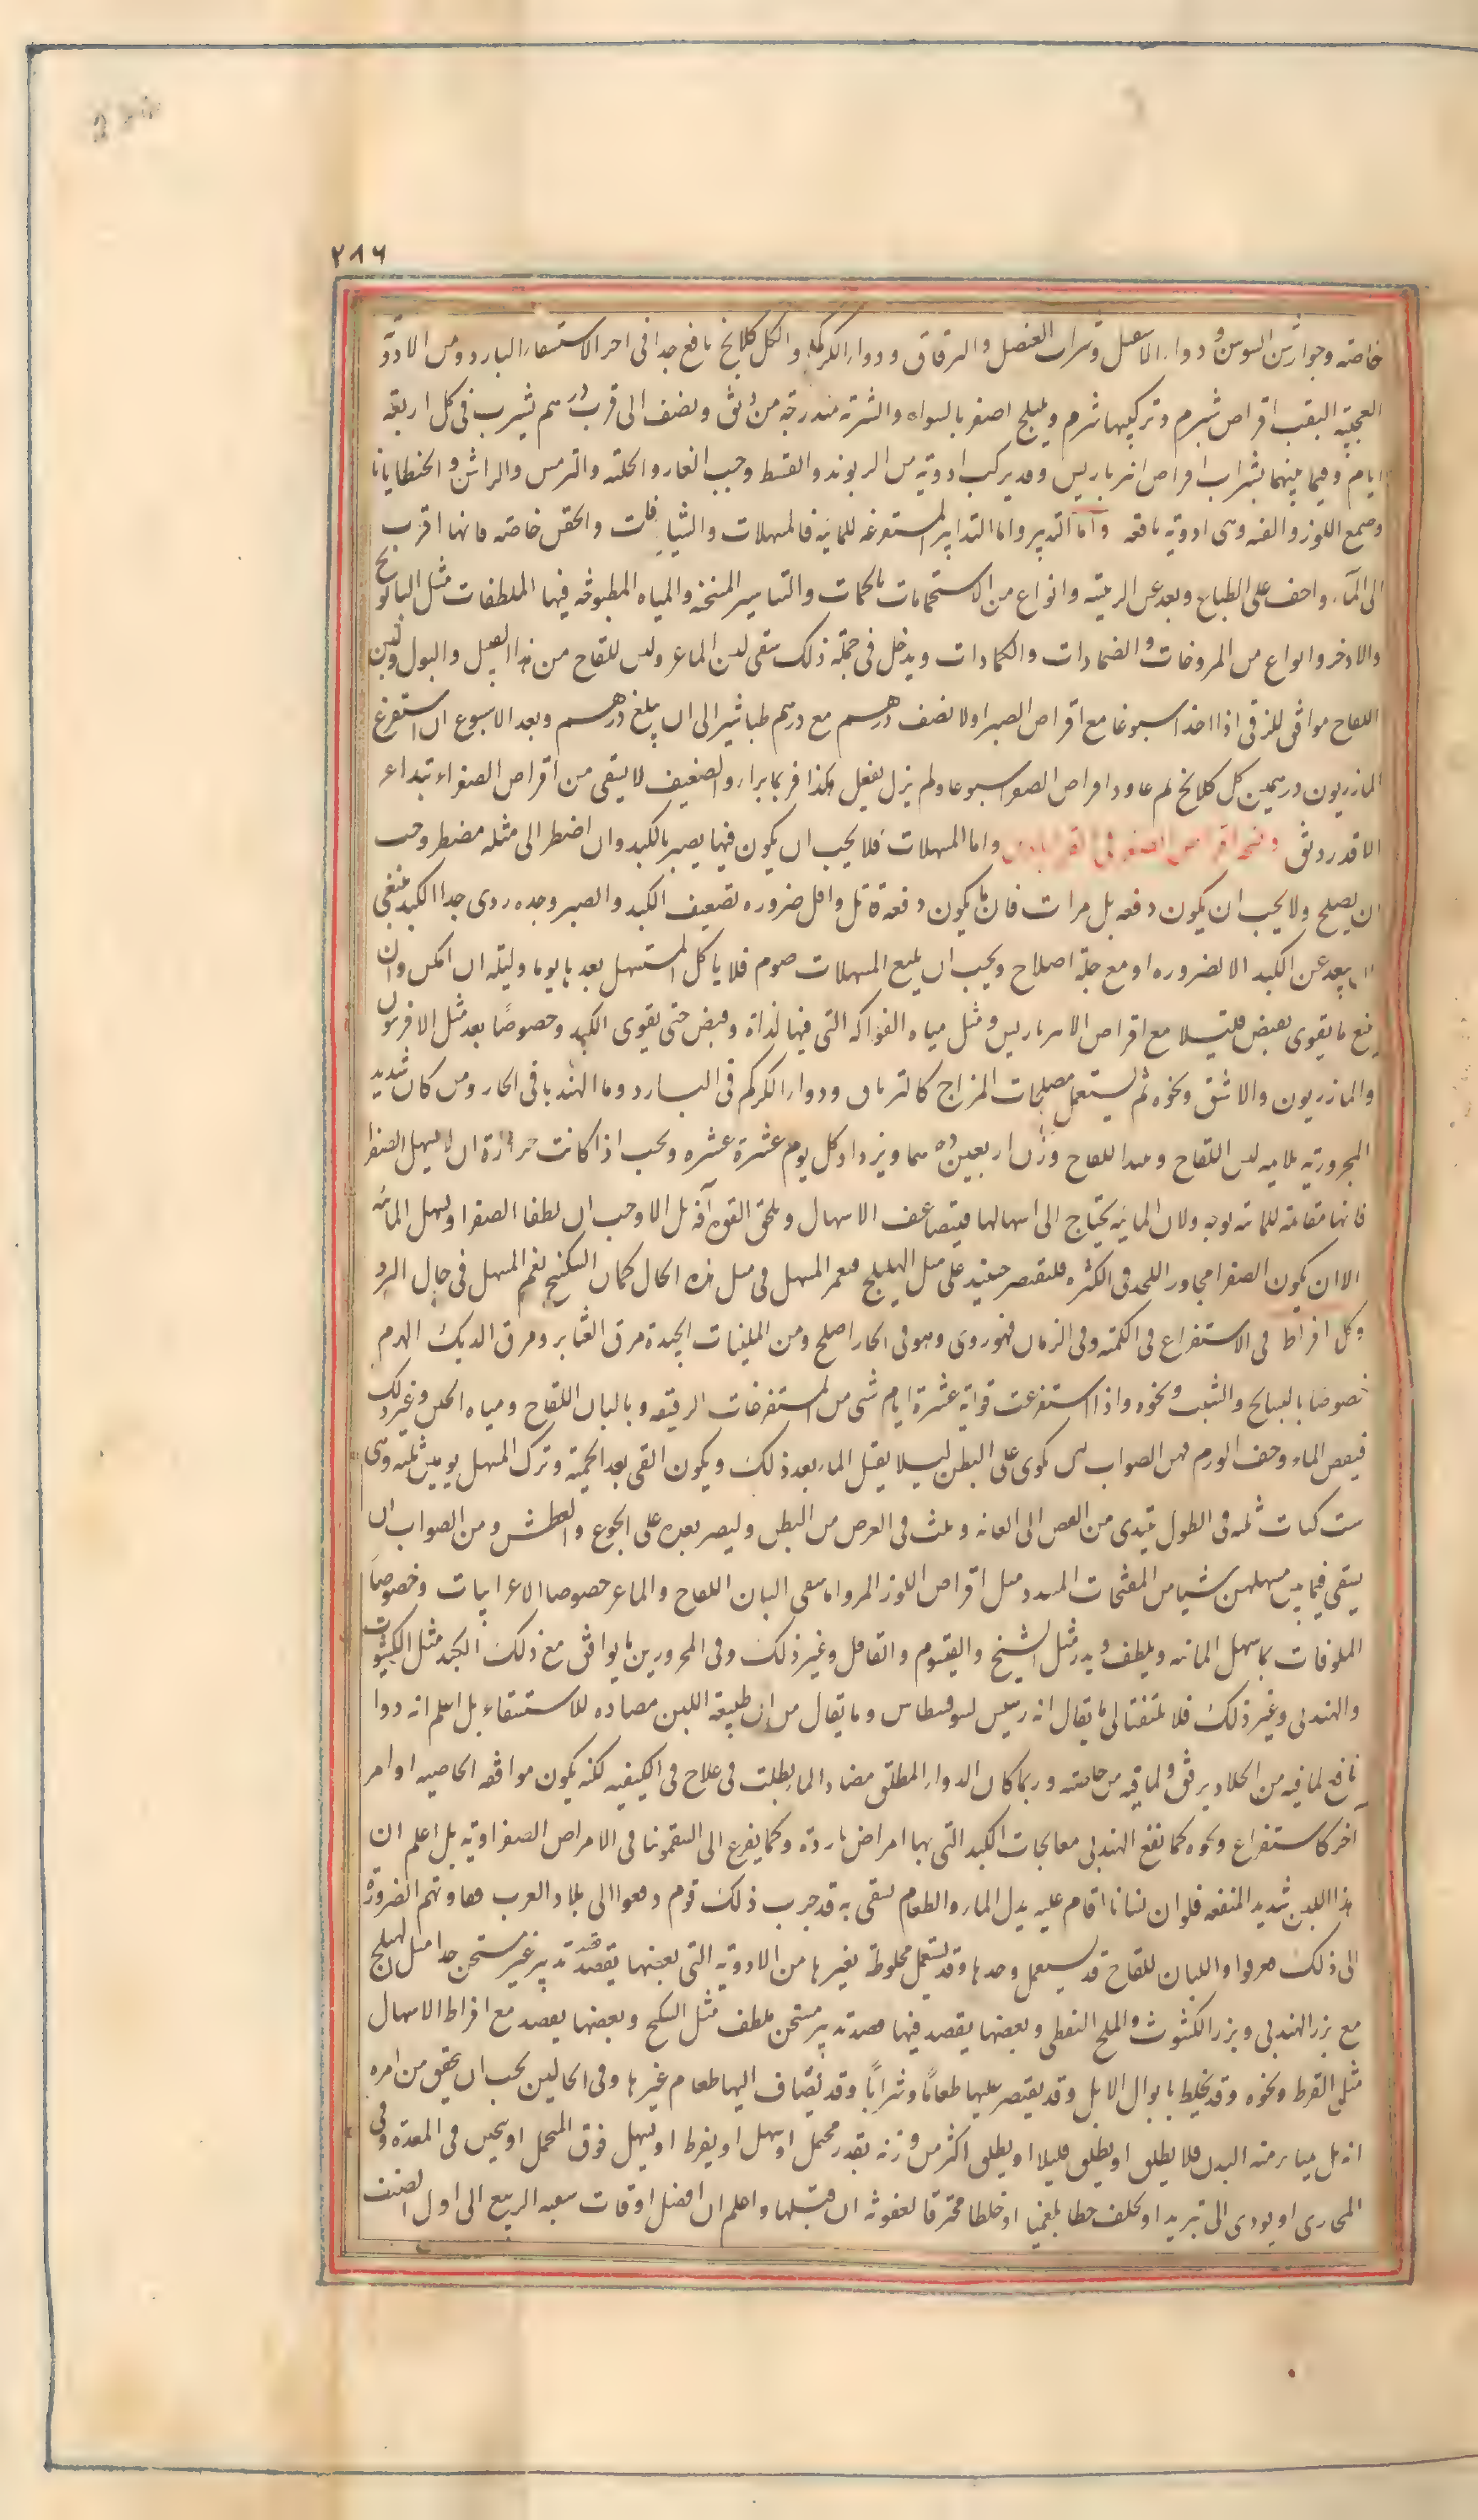 ٢٨٦
خاصته وجوارشن السوسن ودواء الاشقيل وشراب العنصل والترياق ودواء الكركم والكل كلانج نافع جدا فى اخر الاستسقاء البارد ومن الادوية
العجيبة النفع اقراص شبرم وتركيبها شبرم وهليلج اصفر بالسواء والشربة متدرجة من دانق ونصف الى قرب درهم يشرب فى كل اربعة
ايام وفيما بينهما يشرب اقراص انبرباريس وقد يركب ادوية من الريوند والقسط وحب الغار والحلبة والترمس والراسن والجنطيانا
وصمغ اللوز والقنه وهى ادوية نافعه واما التدبير واما التدابير المستفرغه للمائية فالمسهلات والشيافات والحقن خاصته فانها اقرب
الى الماء واخف على الطباع وبعد عن الرئيسة وانواع من الاستحمامات بالحمات والتنانير المسخنة والمياه المطبوخه فيها الملطفات مثل البابونج
والاذخر وانواع من المروخات والضمادات والكمادات ويدخل فى جملة ذلك سقى لبن الماعز ولبن اللقاح من هذا القبيل والبول ولبن
اللقاح موافق للزقى اذا اخذ اسبوعا مع اقراص الصبر اولا نصف درهم مع درهم طباشير الى ان يبلغ درهم وبعد الاسبوع ان استفرغ
المازريون درهمين كل كلانج ثم عاود اقراص الصفر اسبوعا ولم يزل يفعل هكذا فربما برا والضعيف لا يسقى من اقراص الصفر ابتداء
الا قدر دانق ونسخة اقراص الصفر فى القراباذين واما المسهلات فلا يجب ان يكون فيها يضر بالكبد وان اضطر الى مثله مضطر وجب
ان يصلح ولا يجب ان يكون دفعه بل مرات فان ما يكون دفعة قاتل واقل ضرره تضعيف الكبد والصبر وحده ردى جدا الكبد فينبغى
ان يبعد عن الكبد الا لضروره او مع حيلة اصلاح ويجب ان يتبع المسهلات صوم فلا ياكل المستسهل بعدها يوما وليلته ان امكن وان
يتبع ما يقوى بقبض قليلا مع اقراص الامبرباريس ومثل مياه الفواكه التى فيها لذاذة وقبض حتى يقوى الكبد وخصوصًا بعد مثل الافربيون
والمازريون والاشق ونحوه ثم يستعمل مصلحات المزاج كالترياق ودواء الكركم فى البارد وماء الهندبا فى الحار ومن كان شديد
المحرورية بلا ميه لبن اللقاح وهذا اللقاح وزن اربعين درهما ويزداد كل يوم عشرة عشره ويجب اذا كانت حرارة ان لا يسهل الصفرا
فانها مقاومة للمائية بوجه ولان المائية يحتاج الى اسهالها فيتضاعف الاسهال ويلحق القوة آفة بل الاوجب ان يطفا الصفرا ويسهل المائية
الا ان يكون الصفرا مجاوز للحد فى الكثرة فليقتصر حينئذ على مثل الهليلج فنعم المسهل فى مثل هذه الحال كما ان السكبينج نعم المسهل فى حال البرد
وكل افراط فى الاستفراغ فى الكمية وفى الزمان فهو ردى وهو فى الحار اصلح ومن الملينات الجيدة مرق القنابر ومرق الديك الهرم
خصوصا بالبسبايج والشبت ونحوه واذا استفرغت قوامه عشرة ايام شى من المستفرغات الرقيقه وبالبان اللقاح ومياه الجبن وغير ذلك
فنقص الماء وخف الورم فمن الصواب ان يكوى على البطن ليلا يقبل الماء بعد ذلك ويكون الكى بعد الحمية وترك المسهل يومين ثلثه وهى
ست كيات ثلثه فى الطول يبتدى من القص الى العانه وثلث فى العرض من البطن وليصبر بعده على الجوع والعطش ومن الصواب ان
يسقى فيما بين مسهلين شيا من المفتحات للسدد مثل اقراص اللوز المر واما سقى البان اللقاح والماعز خصوصا الاعرابيات وخصوصًا
المعلوفات بما يسهل المائية ويلطف ويدر مثل الشيح والقيصوم والقاقلى وغير ذلك وفى المحرورين ما يوافق مع ذلك الكبد مثل الكشوث
والهندبى وغير ذلك فلا تلتفتن الى ما يقال انه رئيس لسوفسطاس وما يقال من ان طبيعة اللبن مضاده للاستسقاء بل اعلم انه دوا
نافع لما فيه من الجلاء برفق ولما فيه من خاصته وربما كان الدواء المطلق مضادا لما يطلب فى علاج فى الكيفيه لكنه يكون موافقه لخاصيه او امر
آخر كاستفراغ ونحوه كما نفع الهندبى معالجات الكبد التى بها امراض باردة وكما يفزع الى السقمونيا فى الامراض الصفراوية بل اعلم ان
هذا اللبن شديد المنفعه فلو ان انسانا اقام عليه بدل الماء والطعام لشفى به قد جرب ذلك قوم دفعوا الى بلاد العرب فقادتهم الضرورة
الى ذلك فعوفوا والبان اللقاح قد يستعمل وحدها وقد يستعمل مخلوطة بغيرها من الادوية التى بعضها يقصد قصد تدبير غير مسخن جدا مثل الهليلج
مع بزر الهندبى وبزر الكشوث والملح النفطى وبعضها يقصد فيها قصد تدبير مسخن ملطف مثل السكبينج وبعضها يقصد مع افراط الاسهال
مثل القرط ونحوه وقد يخلط بابوال الابل وقد يقتصر عليها طعامًا وشرابًا وقد يضاف اليها طعام غيرها وفى الحالين يجب ان يتحقق من امره
انه هل يمتار منه البدن فلا يطلق او يطلق قليلا او يطلق اكثر من وزنه بقدر محتمل او يسهل او يفرط او يسهل فوق المحتمل او يتجبن فى المعدة وفى
المجارى او يودى الى تبريد او يخلف خلطا بلغميا او خلطا محترقا لعفونة ان قبلها واعلم ان افضل اوقات سقيه الربيع الى اول الصيف